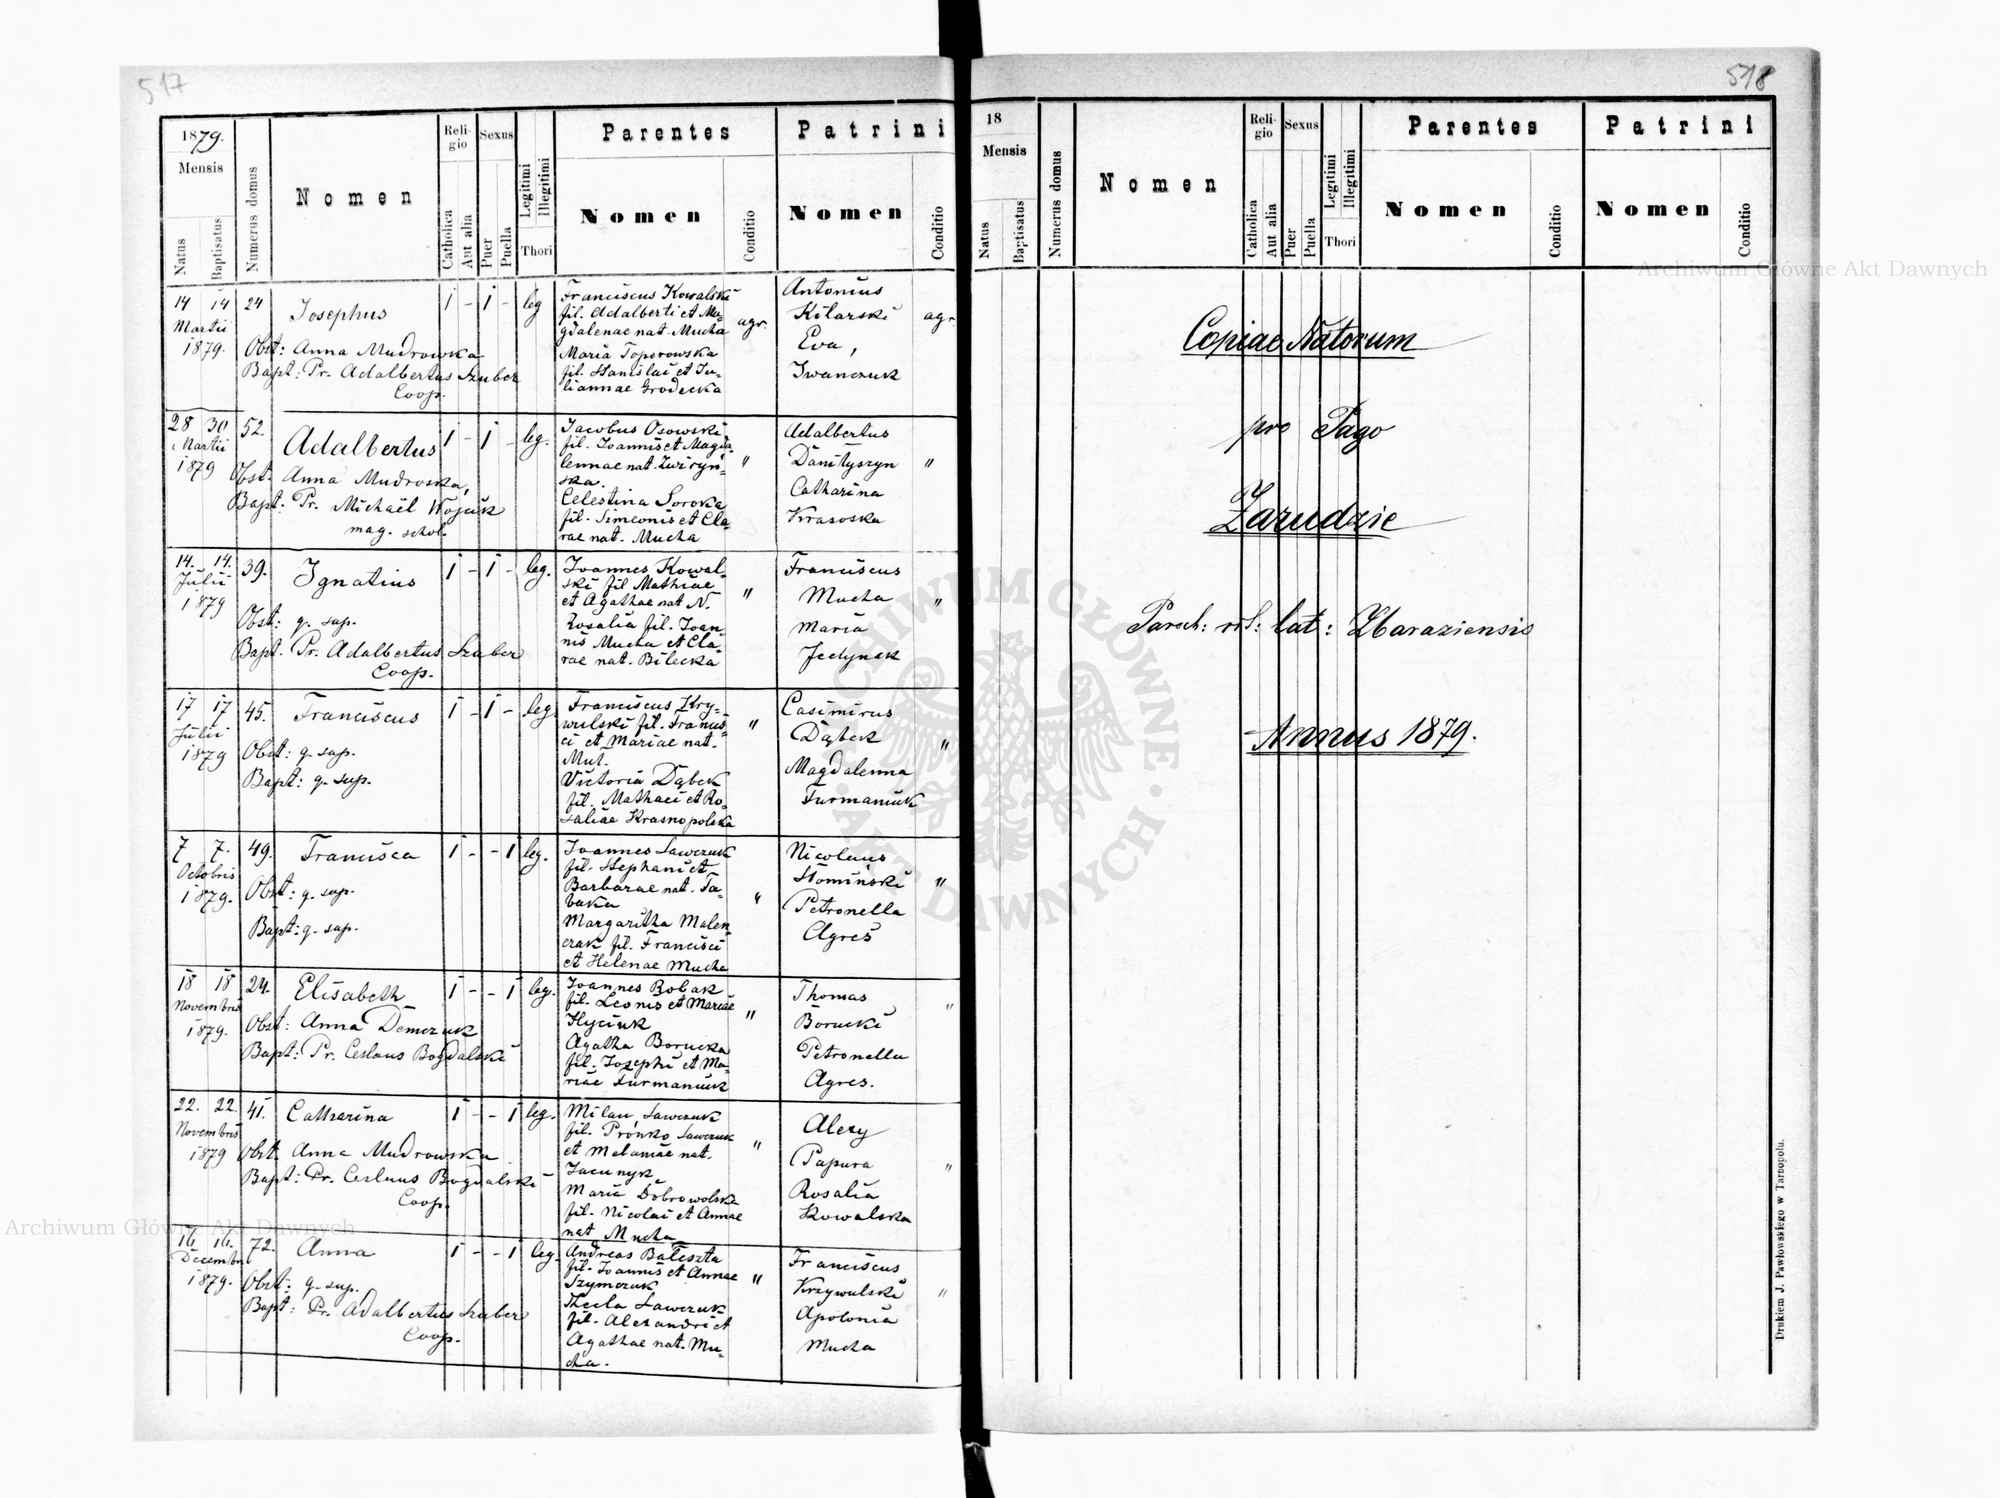 517
1879.
Mensis
Natus
Baptisatus
Numerus domus
Nomen
Religio
Catholica
Aut alia
Sexus
Puer
Puella
Legitimi
Illegitimi
Thori
Parentes
Nomen
Conditio
Patrini
Nomen
Conditio
14 14 24 Josephus 1 - 1 - leg
Martii
1879.
Obst: Anna Mudrowka
Bapt: Pr. Adalbertus Szuber
Coop.
Franciscus Kowalski
fil. Adalberti et Ma-
gdalenae nat. Mucha
agr.
Maria Toporowska
fil. Stanislai et Ju-
liannae Grodecka
Antonius
Kilarski agr.
Eva,
Iwanczuk
28 30 52. Adalbertus 1 - 1 - leg.
Martii
1879
Obst. Anna Mudroska,
Bapt. Pr. Michaël Wojcik
mag. schol.
Jacobus Osowski
fil. Joannis et Magda-
lennae nat. Zwiryń-
ska. "
Celestina Soroka
fil. Simeonis et Cla-
rae nat. Mucha
Adalbertus
Daniłyszyn "
Catharina
Krasoska
14. 14. 39. Ignatius 1 - 1 - leg.
Julii
1879
Obst: q. sup.
Bapt. Pr. Adalbertus Szuber
Coop.
Joannes Kowal-
ski fil Mathiae
et Agathae nat N. "
Rosalia fil. Joan-
nis Mucha et Cla-
rae nat. Bilecka
Franciscus
Mucha "
Maria
Jedynak
17 17 45. Franciscus 1 - 1 - leg
Julii
1879
Obst: q. sup.
Bapt: q. sup.
Franciscus Kry-
wulski fil. Francis-
ci et Mariae nat. "
Mul.
Victoria Dąbek
fil. Mathaei et Ro-
saliae Krasnopolska
Casimirus
Dąbek "
Magdalenna
Furmaniuk
7 7. 49. Francisca 1 - - 1 leg.
Octobris
1879.
Obst: q. sup.
Bapt: q. sup.
Joannes Sawczuk
fil. Stephani et
Barbarae nat. Ta-
baka "
Margaritha Malen-
czak fil. Francisci
et Helenae Mucha
Nicolaus
Słomiński "
Petronella
Agres
18 18 24. Elisabeth 1 - - 1 leg.
Novembris
1879.
Obst: Anna Demczuk
Bapt: Pr. Ceslaus Bogdalski
Joannes Bobak
fil. Leonis et Mariae
Hyciuk "
Agatha Borucka
fil. Josephi et Ma-
riae Furmaniuk
Thomas "
Borucki
Petronella
Agres.
22. 22. 41. Catharina 1 - - 1 leg.
Novembris
1879
Obst. Anna Mudrowska
Bapt: Pr. Ceslaus Bogdalski
Coop.
Milan Sawczuk
fil. Prońko Sawczuk
et Melaniae nat. "
Jacunyk
Maria Dobrowolska
fil. Nicolai et Annae
nat Mucha
Alexy
Papura "
Rosalia
Kowalska
16 16. 72. Anna 1 - - 1 leg.
Decembris
1879.
Obst: q. sup.
Bapt: Pr. Adalbertus Szuber
Coop.
Andreas Baleszta
fil. Joannis et Annae
Szymczuk "
Thecla Sawczuk
fil. Alexandri et
Agathae nat. Mu-
cha.
Franciscus
Krzywulski "
Apolonia
Mucha
518
18
Mensis
Natus
Baptisatus
Numerus domus
Nomen
Religio
Catholica
Aut alia
Sexus
Puer
Puella
Legitimi
Illegitimi
Thori
Parentes
Nomen
Conditio
Patrini
Nomen
Conditio
Copiae Natorum
pro Pago
Zarudzie
Paroch: rit: lat: Zbaraziensis
Annus 1879.
Drukiem J. Pawłowskiego w Tarnopolu.
Archiwum Główne Akt Dawnych
Archiwum Główne Akt Dawnych
ARCHIWUM GŁÓWNE · AKT DAWNYCH ·